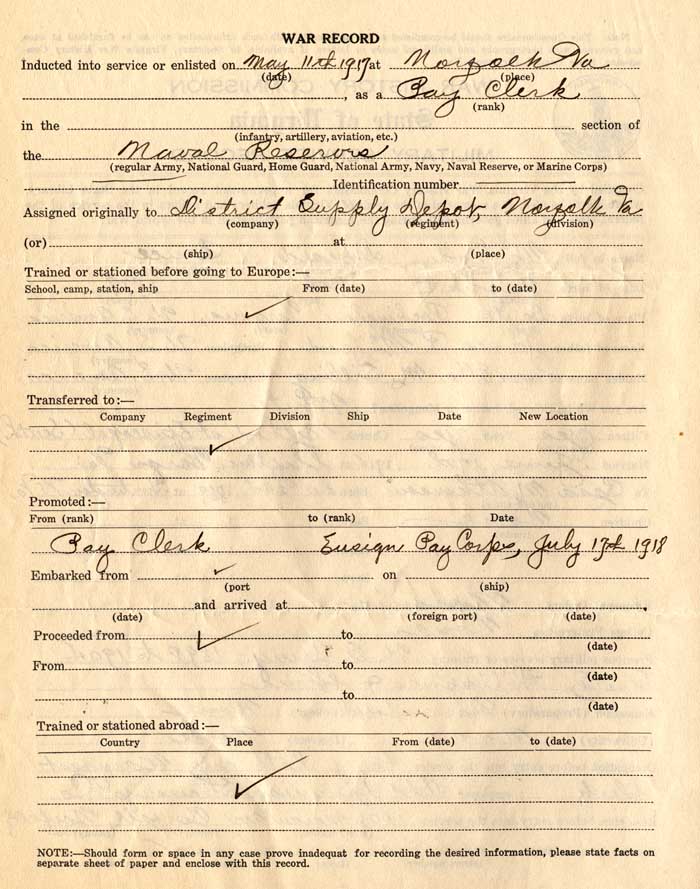 WAR RECORD
Inducted into service or enlisted on May 11th 1917 at Norfolk Va
(date) (place)
, as a Pay Clerk
(rank)
in the section of
(infantry, artillery, aviation, etc.)
the Naval Reserves
(regular Army, National Guard, Home Guard, National Army, Navy, Naval Reserve, or Marine Corps)
Identification number
Assigned originally to District Supply Depot, Norfolk Va
(company) (regiment) (division)
(or) at
(ship) (place)
Trained or stationed before going to Europe:—
School, camp, station, ship From (date) to (date)
Transferred to:—
Company Regiment Division Ship Date New Location
Promoted:—
From (rank) to (rank) Date
Pay Clerk Ensign Pay Corps, July 17th 1918
Embarked from on
(port (ship)
and arrived at
(date) (foreign port) (date)
Proceeded from to
(date)
From to
(date)
to
(date)
Trained or stationed abroad:—
Country Place From (date) to (date)
NOTE:—Should form or space in any case prove inadequat for recording the desired information, please state facts on
separate sheet of paper and enclose with this record.